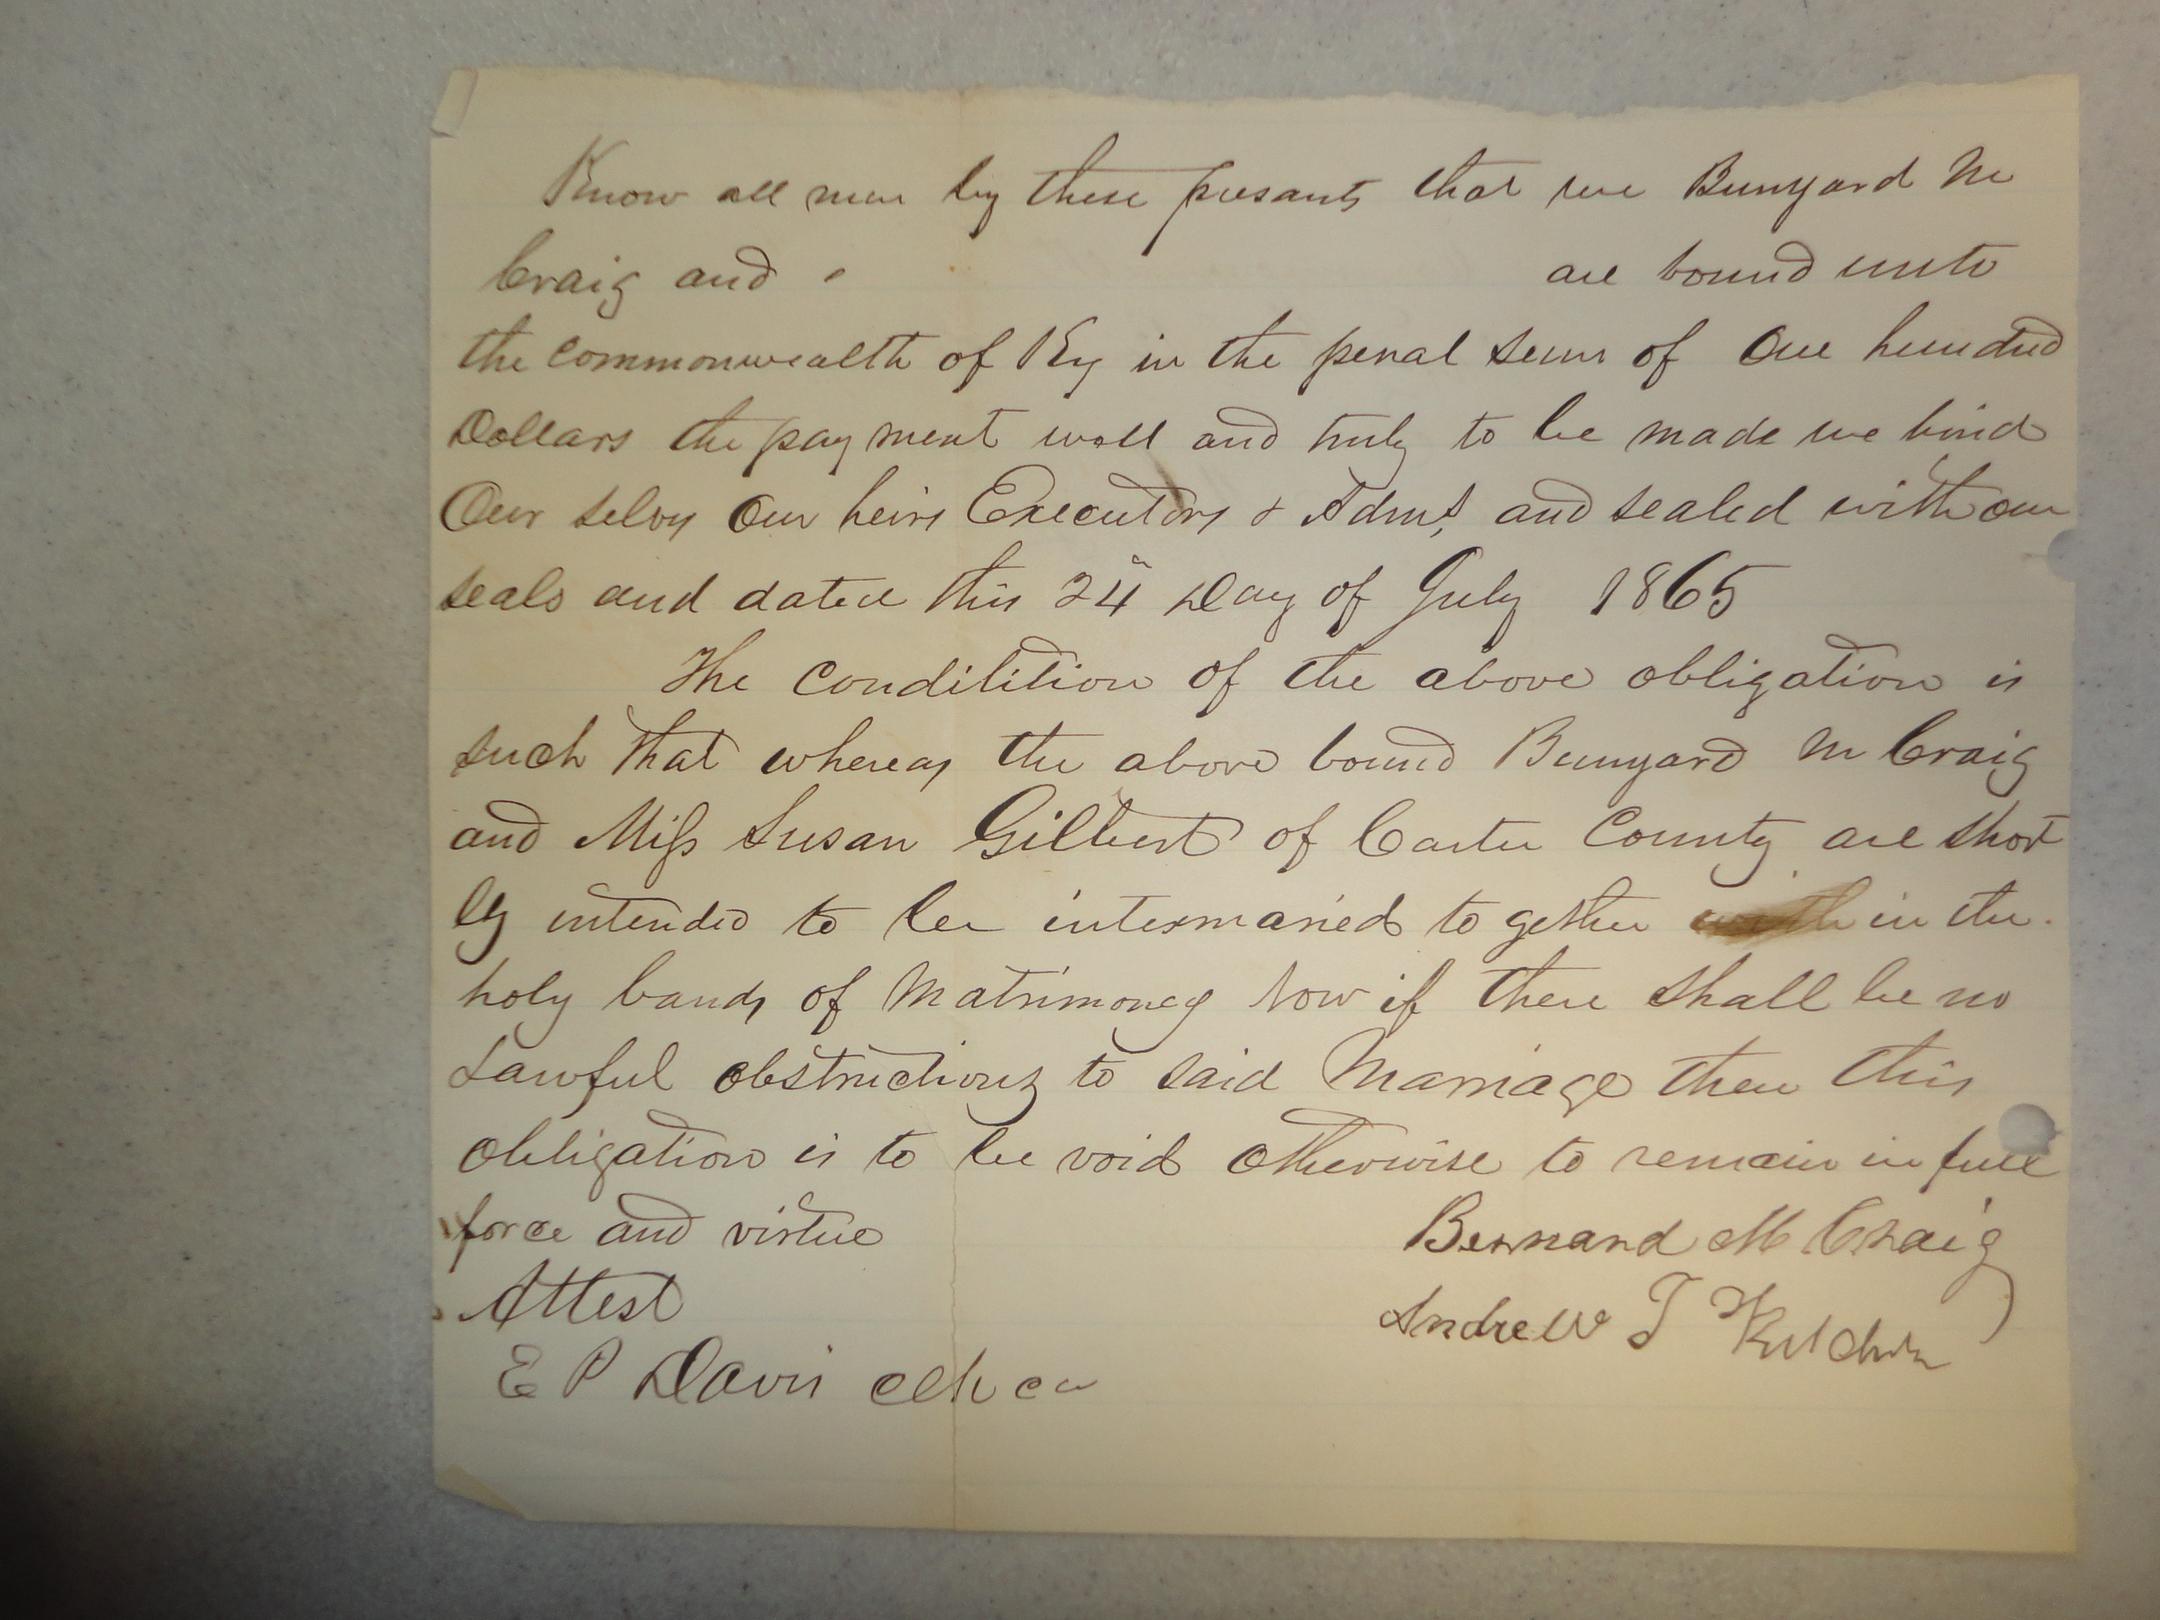 Know all men by these presants that we Bunyard M
Craig and are bound unto
the commonwealth of Ky in the penal sum of One hundred
Dollars the payment well and truly to be made we bind
Our selvs Our heirs Executors & Adms, and sealed with our
seals and dated this 24" Day of July 1865
The Condilition of the above obligation is
such that whereas the above bound Bunyard M Craig
and Miss Susan Gilbert of Carter County are short
ly intended to be intermaried to gether with in the
holy bands of Matrimoney Now if there shall be no
Lawful obstructions to said Marriage then this
obligation is to be void otherwise to remain in full
force and virtue
Bernard M Craig
Attest
Andrew J
E P Davis clk